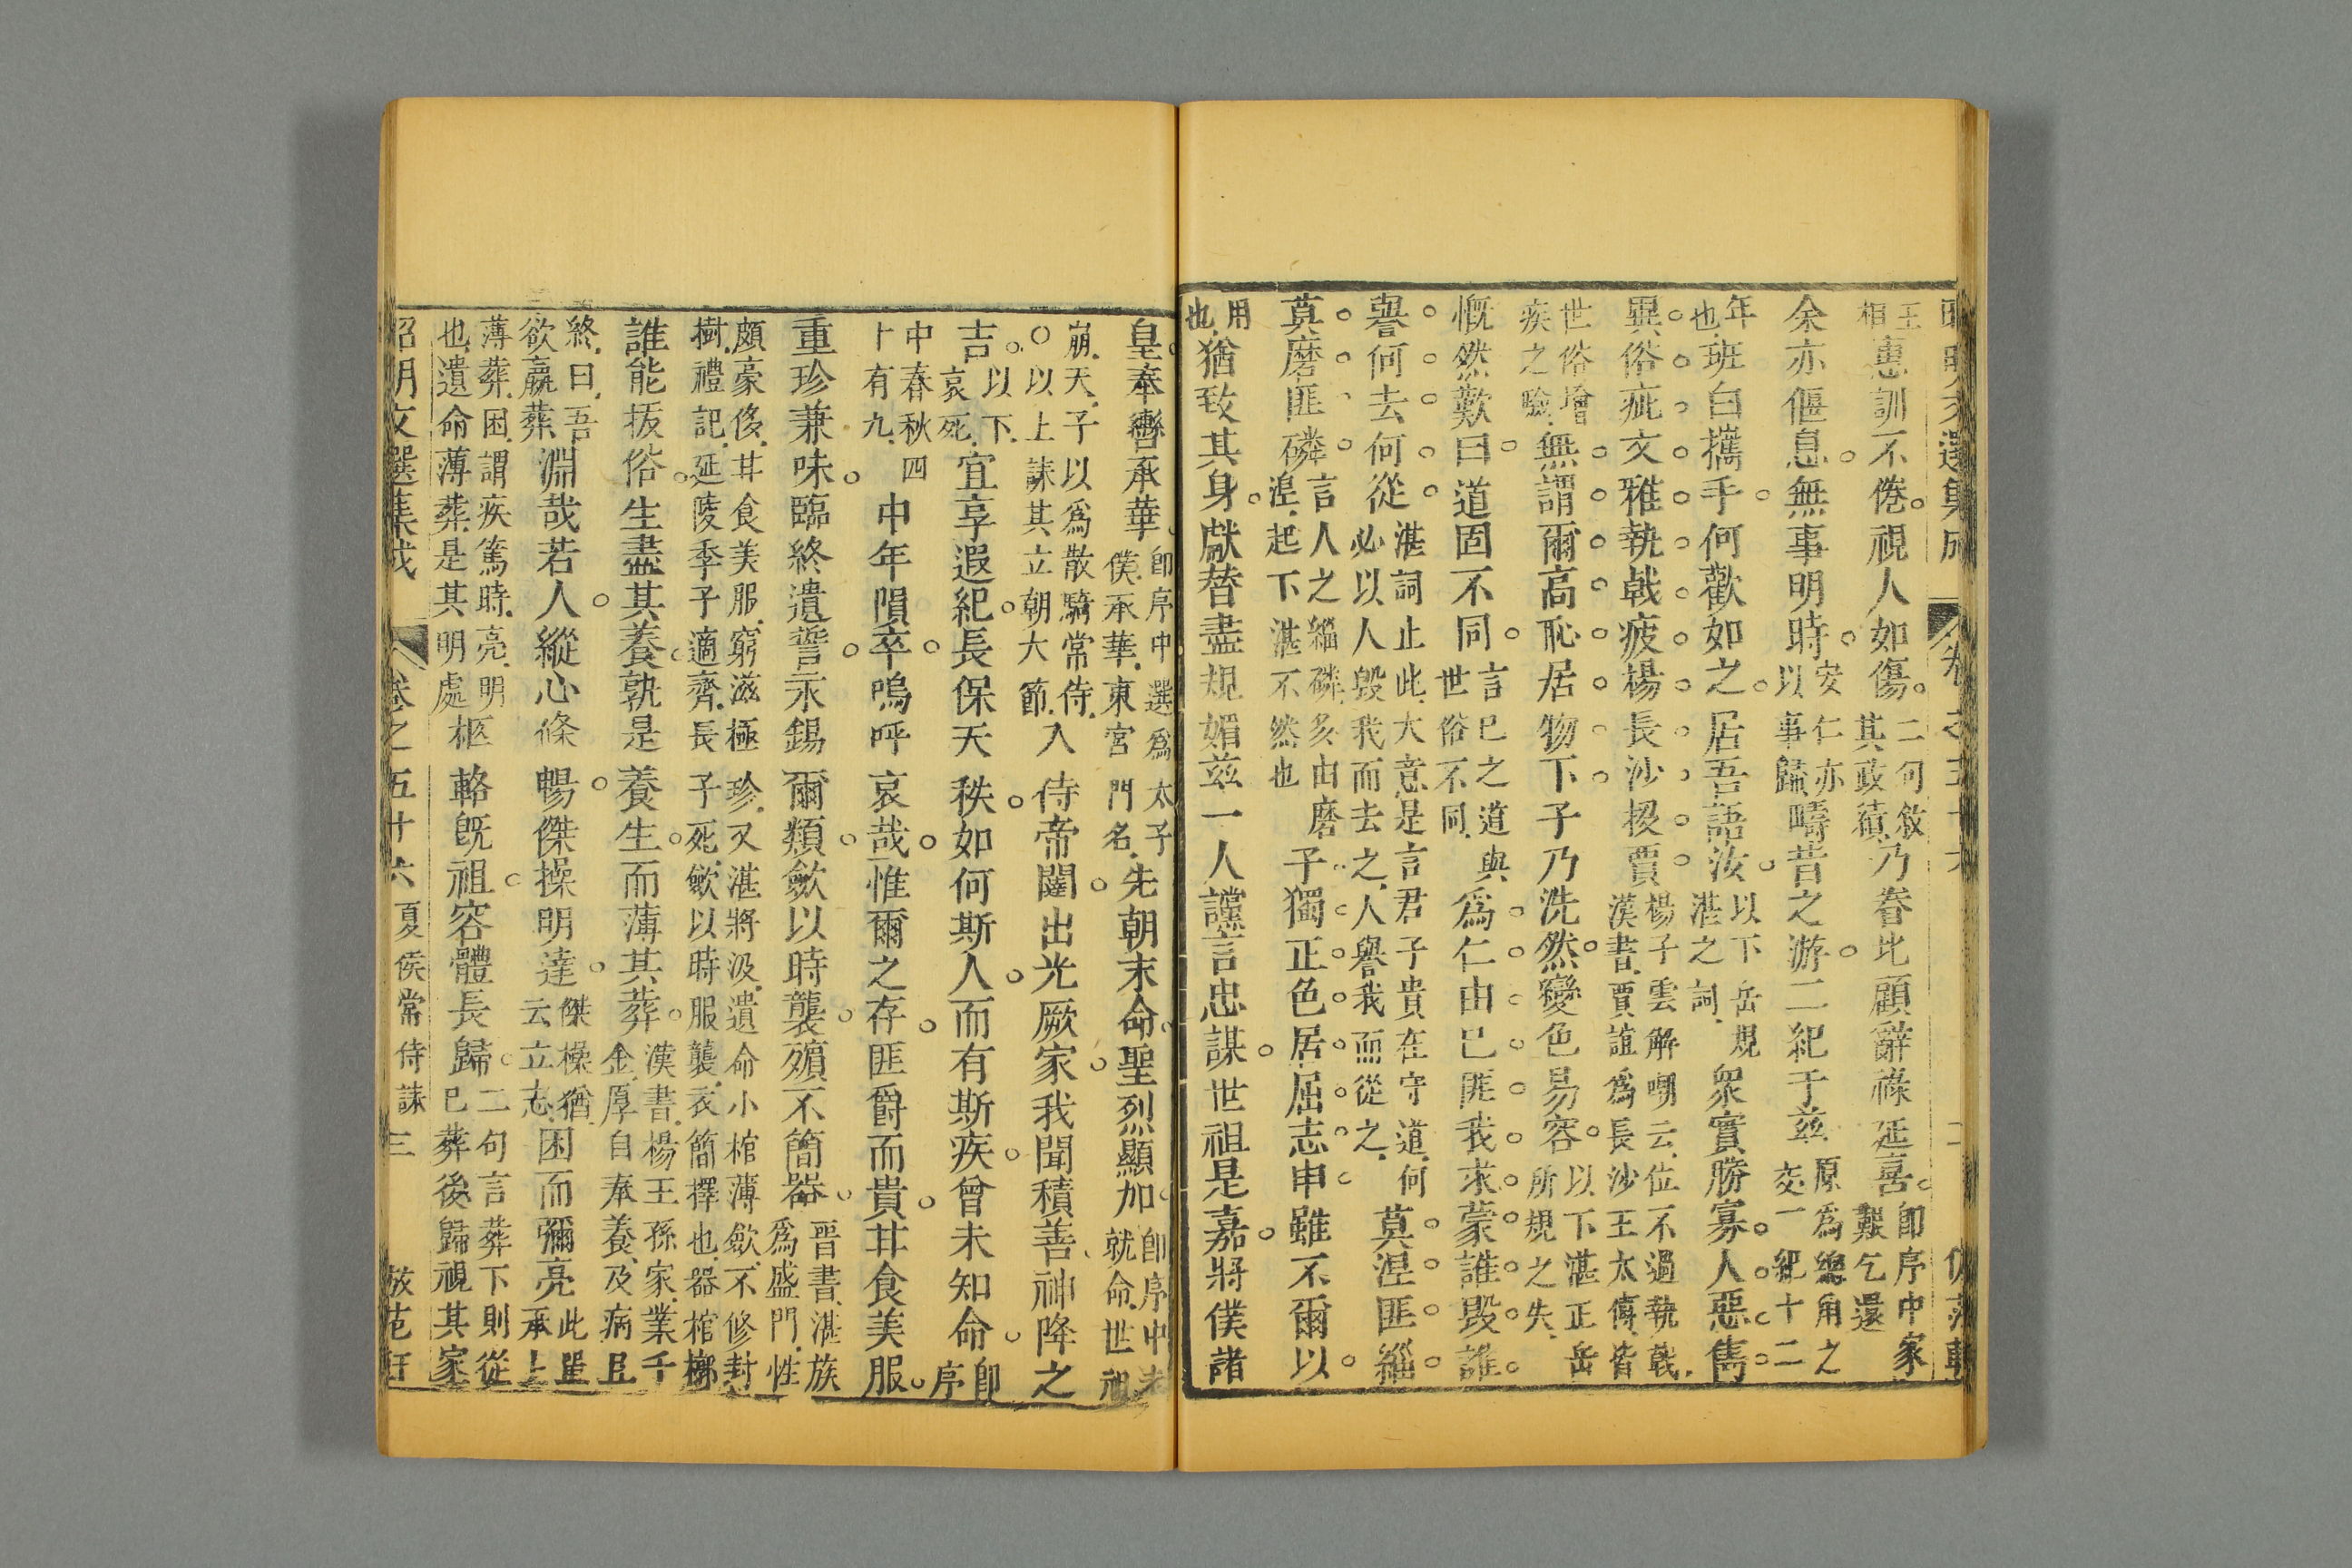 王相惠訓不倦。視人如傷。二句敘其政績乃眷北顧。辭祿延喜。卽序中家艱乞還
余亦偃息。無事明時。安仁亦以事歸疇昔之游。二紀于茲原爲總角之交一紀十二
年也班白攜手。何歡如之。居吾語汝。以下岳規湛之詞衆實勝寡。人惡雋
異。俗疵文雅。執戟疲楊。長沙投賈。楊子雲解嘲云位不過執戟漢書賈誼爲長沙王太傅皆
世俗增疾之驗無謂爾高。恥居物下。子乃洗然。變色易容。以下湛正岳所規之失
慨然歎曰。道固不同。言已之道與世俗不同爲仁由已。匪我求蒙。誰毀誰
譽。何去何從。湛詞止此大意是言君子貴在守道何必以人毀我而去之人譽我而從之莫涅匪緇。
莫磨匪磷。言人之緇磷多由磨涅起下湛不然也子獨正色。居屈志申。雖不爾以。
用也猶致其身。獻替盡規媚茲一人讜言忠謀。世祖是嘉。將僕諸
皇。奉轡承華。卽序中選爲太子僕承華東宮門名先朝末命。聖烈顯加。卽序中未就命世祖
崩天子以爲散騎常侍○以上誄其立朝大節入侍帝闥。出光厥家。我聞積善、神降之
吉。以下哀死宜享遐紀。長保天秩。如何斯人。而有斯疾。曾未知命。卽序
中春秋四十有九中年隕卒。嗚呼哀哉。惟爾之存。匪爵而貴。甘食美服。
重珍兼味。臨終遺誓。永錫爾類。斂以時襲。殯不簡器。晉書湛族爲盛門性
頗豪侈甘食美服窮滋極珍又湛將沒遺命小棺薄斂不修封樹禮記延陵季子適齊長子死斂以時服襲衣簡擇也器棺槨
誰能拔俗。生盡其養。孰是養生。而薄其葬。漢書楊王孫家業千金厚自奉養及病且
終曰吾欲臝葬淵哉若人。縱心條暢。傑操明達。傑操猶云立志困而彌亮此單承上
薄葬困謂疾篤時亮明也遺命薄葬是其明處柩輅旣祖。容體長歸。二句言葬下則從已葬後歸視其家
昭明文選集成 卷之五十六 夏侯常侍誄 三 倣范軒